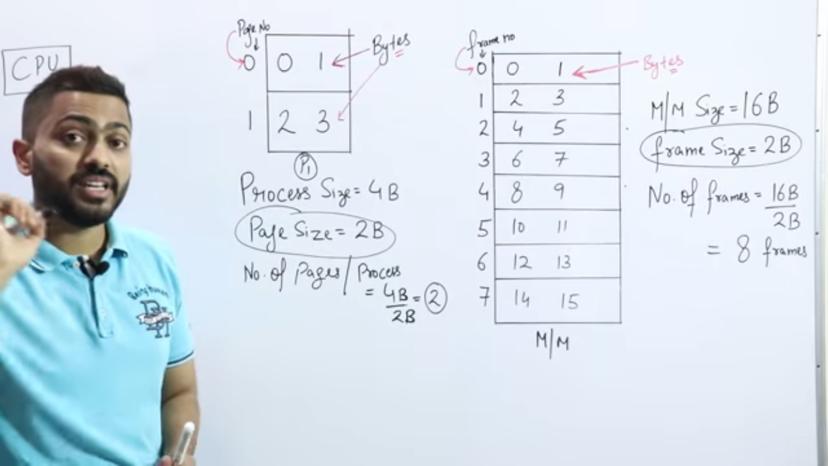 CPU
Page No
0 0 1
1 2 3
Bytes
P1
Process Size = 4B
Page Size = 2B
No. of Pages / Process
= 4B/2B = 2
frame no
0 0 1
1 2 3
2 4 5
3 6 7
4 8 9
5 10 11
6 12 13
7 14 15
M/M
Bytes
M/M Size = 16B
frame Size = 2B
No. of frames = 16B/2B
= 8 frames
Being Human